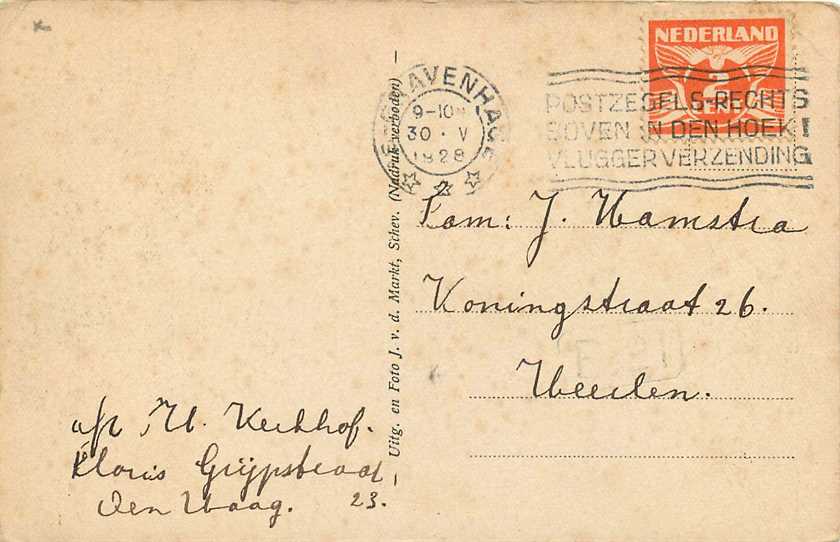 NEDERLAND
2
CENT
'S-GRAVENHAGE
9-10
30 · V
1928
POSTZEGELS-RECHTS
BOVEN IN DEN HOEK!
VLUGGER VERZENDING
Uitg. en Foto J. v. d. Markt, Schev. (Nadruk verboden)
Fam: J. Hamstra
Koningstraat 26.
Heerlen.
afz. H. Kerkhof.
Floris Grijpstraat
Den Haag. 23.